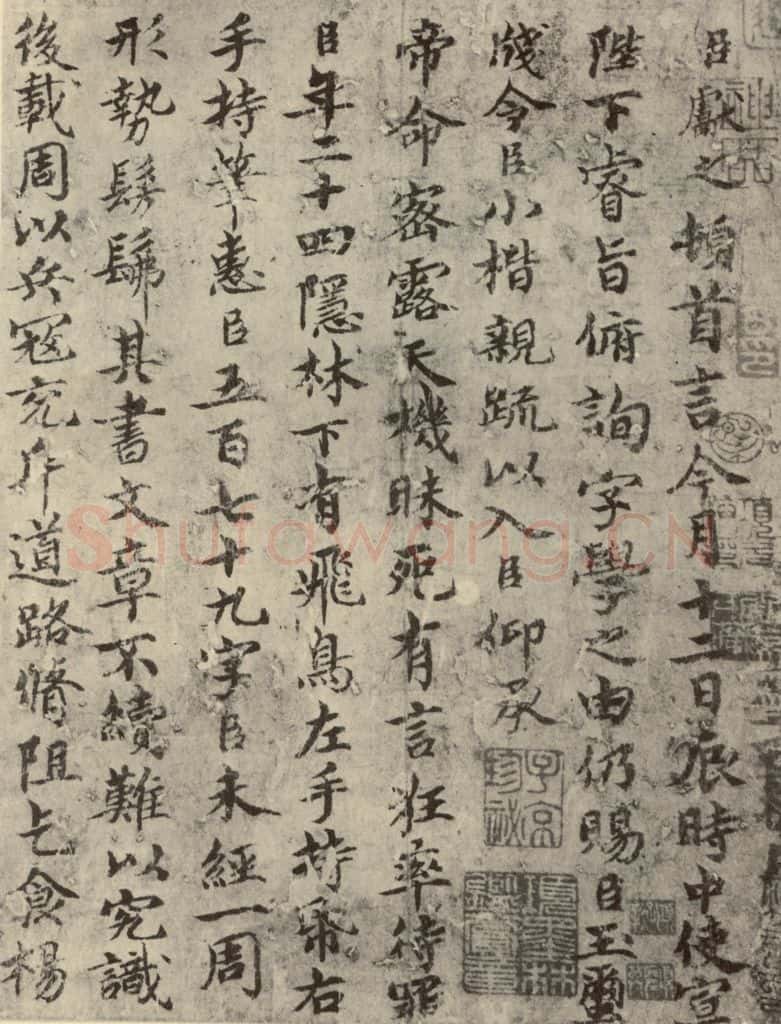 臣獻之頓首言今月十二日辰時中使宣
陛下睿旨俯詢字學之由仍賜臣玉璽
牋今臣小楷親疏以入臣仰承
帝命密露天機昧死有言狂率待罪
臣年二十四隱林下有飛鳥左手持帋右
手持筆惠臣五百七十九字臣未經一周
形勢髣髴其書文章不續難以究識
後載周以兵寇充斥道路脩阻乞食楊
子京珍祕
Shufawang.CN